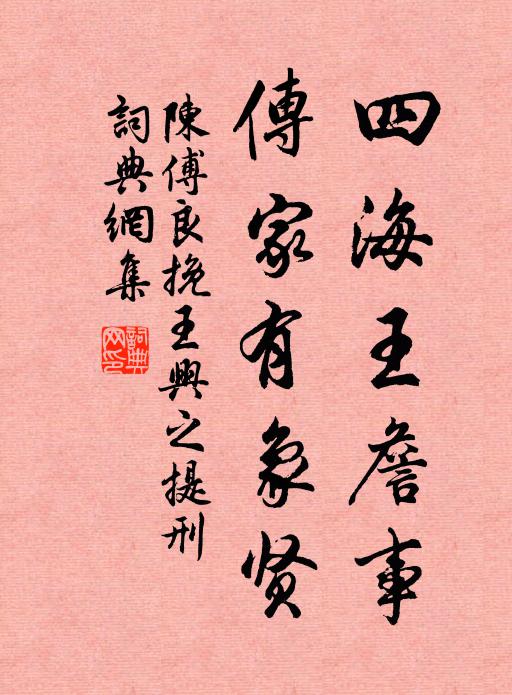 四海王詹事
傳家有象贤
陳傅良挽王興之提刑
詞典網集
詞典网印